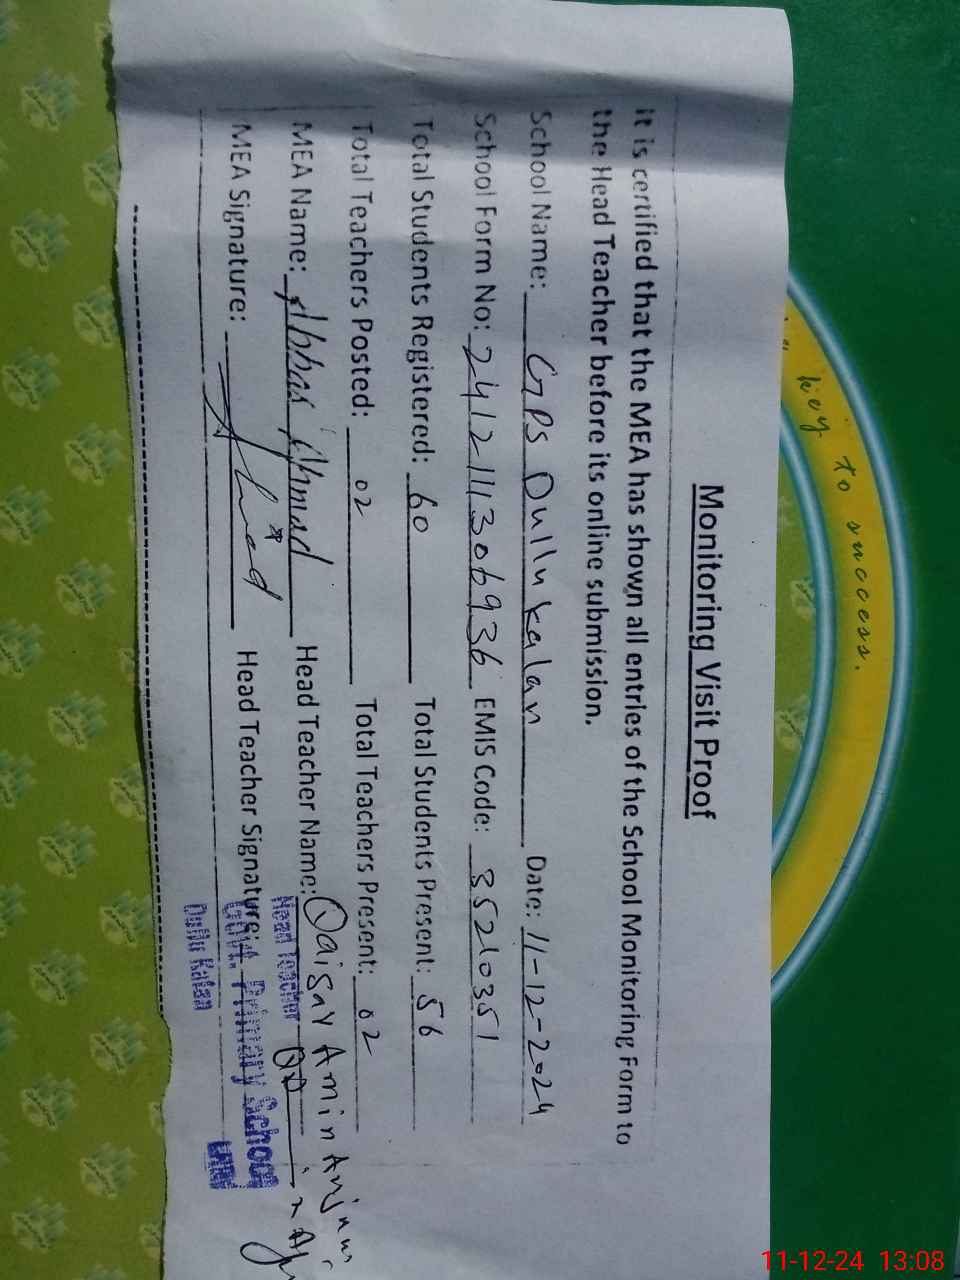 key to success.
Monitoring Visit Proof
It is certified that the MEA has shown all entries of the School Monitoring Form to
the Head Teacher before its online submission.
School Name: GPS Dullu kalan Date: 11-12-2024
School Form No: 241211306936 EMIS Code: 35210351
Total Students Registered: 60 Total Students Present: 56
Total Teachers Posted: 02 Total Teachers Present: 02
MEA Name: Abbas Ahmad Head Teacher Name: Qaisar Amin Anjum
MEA Signature: Ahmad Head Teacher Signature:
Head Teacher
Govt. Primary School
Dullu Kalan
11-12-24 13:08